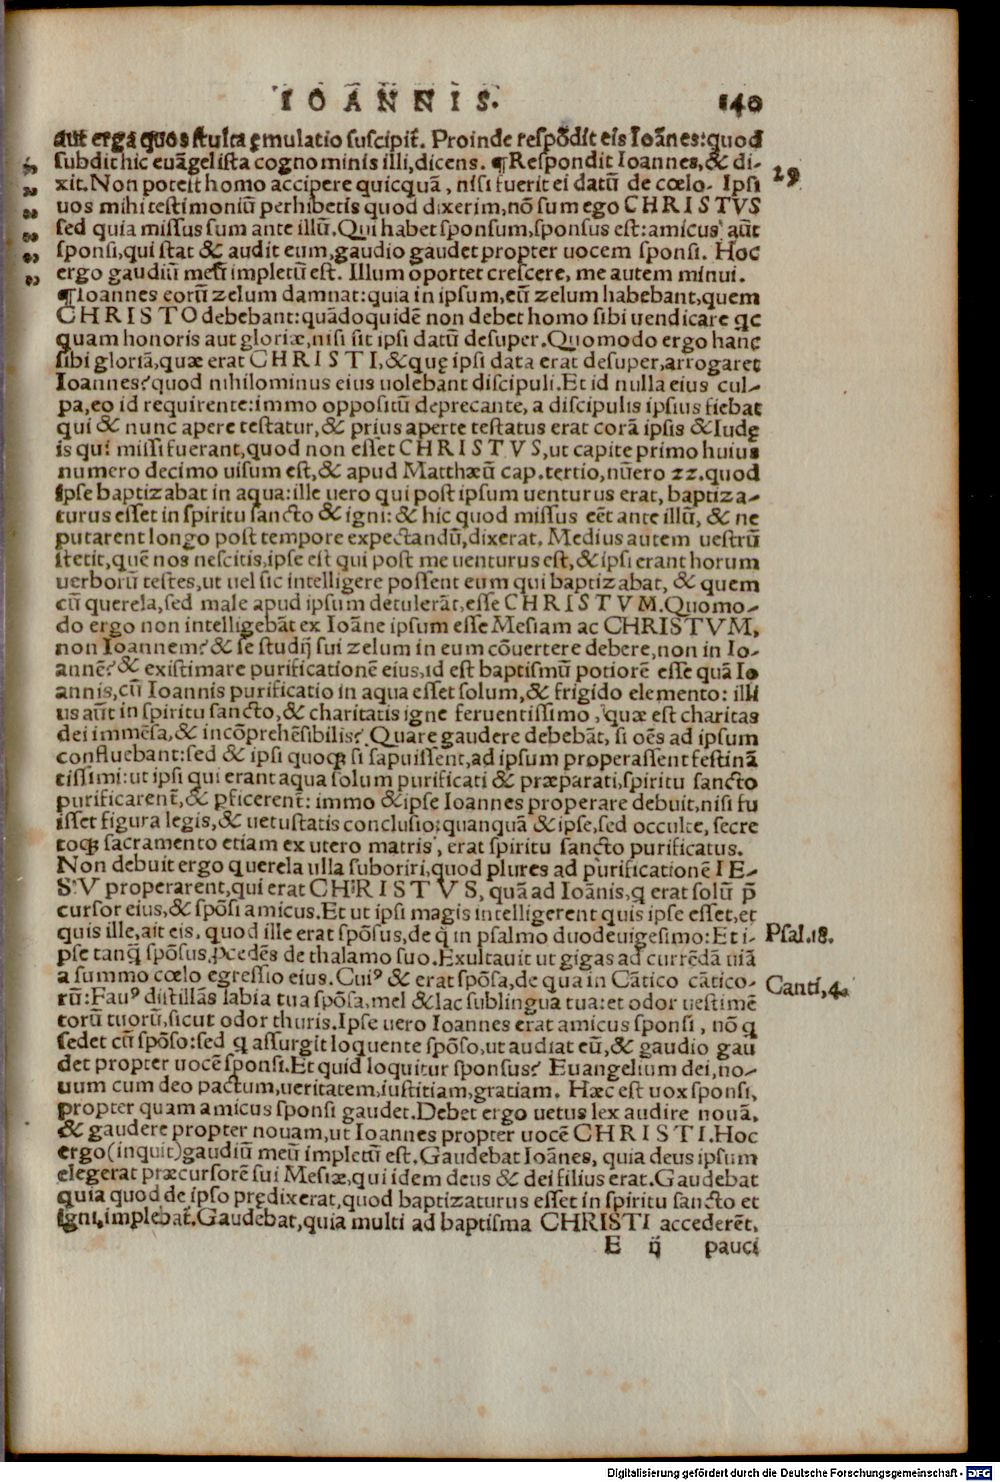 IOANNIS. 140
aut erga quos stulta ęmulatio suscipit̃. Proinde respõdit eis Ioãnes: quod
subdit hic euãgelista cognominis illi, dicens. ¶Respondit Ioannes, & di-
xit. Non potest homo accipere quicquã, nisi fuerit ei datũ de cœlo. Ipsi 29
uos mihi testimoniũ perhibetis quod dixerim, nõ sum ego CHRISTVS
sed quia missus sum ante illũ. Qui habet sponsum, sponsus est: amicus aũt
sponsi, qui stat & audit eum, gaudio gaudet propter uocem sponsi. Hoc
ergo gaudiũ meũ impletũ est. Illum oportet crescere, me autem minui.
¶Ioannes eorũ zelum damnat: quia in ipsum, eũ zelum habebant, quem
CHRISTO debebant: quãdoquidẽ non debet homo sibi uendicare qc
quam honoris aut gloriæ, nisi sit ipsi datũ desuper. Quomodo ergo hanc
sibi gloriã, quæ erat CHRISTI, & quę ipsi data erat desuper, arrogaret
Ioannes? quod nihilominus eius uolebant discipuli. Et id nulla eius cul-
pa, eo id requirente: immo oppositũ deprecante, a discipulis ipsius fiebat
qui & nunc aperte testatur, & prius aperte testatus erat corã ipsis & Iudę
is qui missi fuerant, quod non esset CHRISTVS, ut capite primo huius
numero decimo uisum est, & apud Matthæũ cap. tertio, nũero 22. quod
ipse baptizabat in aqua: ille uero qui post ipsum uenturus erat, baptiza-
turus esset in spiritu sancto & igni: & hic quod missus eẽt ante illũ, & ne
putarent longo post tempore expectandũ, dixerat. Medius autem uestrũ
stetit, quẽ nos nescitis, ipse est qui post me uenturus est, & ipsi erant horum
uerborũ testes, ut uel sic intelligere possent eum qui baptizabat, & quem
cũ querela, sed male apud ipsum detulerãt, esse CHRISTVM. Quomo-
do ergo non intelligebãt ex Ioãne ipsum esse Mesiam ac CHRISTVM,
non Ioannem? & se studij sui zelum in eum cõuertere debere, non in Io-
annẽ? & existimare purificationẽ eius, id est baptismũ potiorẽ esse quã Io
annis, cũ Ioannis purificatio in aqua esset solum, & frigido elemento: illi
us aũt in spiritu sancto, & charitatis igne feruentissimo, quæ est charitas
dei immẽsa, & incõprehẽsibilis? Quare gaudere debebãt, si oẽs ad ipsum
confluebant: sed & ipsi quoqꝫ si sapuissent, ad ipsum properassent festinã
tissimi: ut ipsi qui erant aqua solum purificati & præparati, spiritu sancto
purificarent̃, & ꝑficerent̃: immo & ipse Ioannes properare debuit, nisi fu
isset figura legis, & uetustatis conclusio: quanquã & ipse, sed occulte, secre
toqꝫ sacramento etiam ex utero matris, erat spiritu sancto purificatus.
Non debuit ergo querela ulla suboriri, quod plures ad purificationẽ IE-
SV properarent, qui erat CHRISTVS, quã ad Ioãnis, q erat solũ p̃
cursor eius, & spõsi amicus. Et ut ipsi magis intelligerent quis ipse esset, et
quis ille, ait eis, quod ille erat spõsus, de q̃ in psalmo duodeuigesimo: Et i- Psal. 18.
pse tanq̃ spõsus, p̱cedẽs de thalamo suo. Exultauit ut gigas ad currẽdã uiã
a summo cœlo egressio eius. Cuiꝰ & erat spõsa, de qua in Cãtico cãtico- Canti, 4.
rũ: Fauꝰ distillãs labia tua spõsa, mel & lac sub lingua tua: et odor uestimẽ
torũ tuorũ, sicut odor thuris. Ipse uero Ioannes erat amicus sponsi, nõ q
sedet cũ spõso: sed q assurgit loquente spõso, ut audiat eũ, & gaudio gau
det propter uocẽ sponsi. Et quid loquitur sponsus? Euangelium dei, no-
uum cum deo pactum, ueritatem, iustitiam, gratiam. Hæc est uox sponsi,
propter quam amicus sponsi gaudet. Debet ergo uetus lex audire nouã,
& gaudere propter nouam, ut Ioannes propter uocẽ CHRISTI. Hoc
ergo (inquit) gaudiũ meũ impletũ est. Gaudebat Ioãnes, quia deus ipsum
elegerat præcursorẽ sui Mesiæ, qui idem deus & dei filius erat. Gaudebat
quia quod de ipso prędixerat, quod baptizaturus esset in spiritu sancto et
igni, implebat̃. Gaudebat, quia multi ad baptisma CHRISTI accederẽt,
E ij pauci
Digitalisierung gefördert durch die Deutsche Forschungsgemeinschaft - DFG